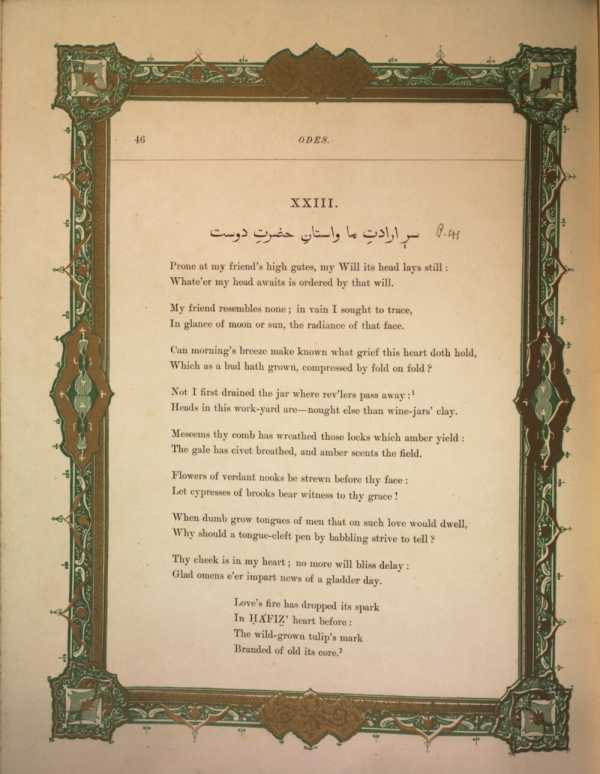 46
ODES.
XXIII.
سرِ ارادتِ ما واستانِ حضرتِ دوست
Prone at my friend's high gates, my Will its head lays still :
Whate'er my head awaits is ordered by that will.
My friend resembles none ; in vain I sought to trace,
In glance of moon or sun, the radiance of that face.
Can morning's breeze make known what grief this heart doth hold,
Which as a bud hath grown, compressed by fold on fold ?
Not I first drained the jar where rev'lers pass away :¹
Heads in this work-yard are—nought else than wine-jars' clay.
Meseems thy comb has wreathed those locks which amber yield :
The gale has civet breathed, and amber scents the field.
Flowers of verdant nooks be strewn before thy face :
Let cypresses of brooks bear witness to thy grace !
When dumb grow tongues of men that on such love would dwell,
Why should a tongue-cleft pen by babbling strive to tell ?
Thy cheek is in my heart ; no more will bliss delay :
Glad omens e'er impart news of a gladder day.
Love's fire has dropped its spark
In ḤÁFIẒ' heart before :
The wild-grown tulip's mark
Branded of old its core.²